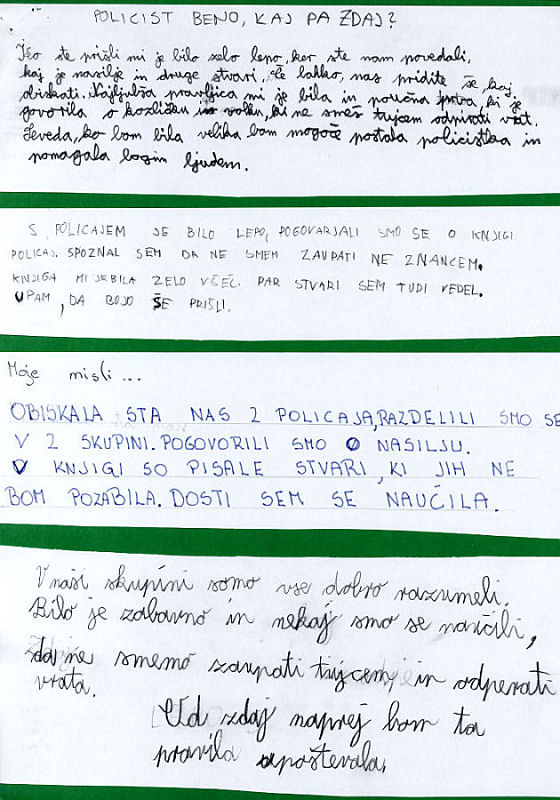 POLICIST BENO, KAJ PA ZDAJ?
Ko ste prišli mi je bilo zelo lepo, ker ste nam povedali,
kaj je nasilje in druge stvari. Če lahko, nas pridite še kaj
obiskati. Najljubša pravljica mi je bila in poučna prva, ki je
govorila o kozličku in volku, ki ne smeš tujcem odpirati vrat.
Seveda, ko bom bila velika bom mogoče postala policistka in
pomagala ljudem.
S POLICAJEM JE BILO LEPO, POGOVARJALI SMO SE O KNJIGI
POLICAJ. SPOZNAL SEM DA NE SMEM ZAUPATI NE ZNANCEM.
KNJIGA MI JE BILA ZELO VŠEČ. PAR STVARI SEM TUDI VEDEL.
UPAM, DA BOJO ŠE PRIŠLI.
Moje misli...
OBISKALA STA NAS 2 POLICAJA, RAZDELILI SMO SE
V 2 SKUPINI. POGOVORILI SMO O NASILJU.
V KNJIGI SO PISALE STVARI, KI JIH NE
BOM POZABILA. DOSTI SEM SE NAUČILA.
V naši skupini somo vse dobro razumeli.
Bilo je zabavno in nekaj smo se naučili,
da ne smemo zaupati tujcem, in odperati
vrata.
Od zdaj naprej bom ta
pravila upoštevala.